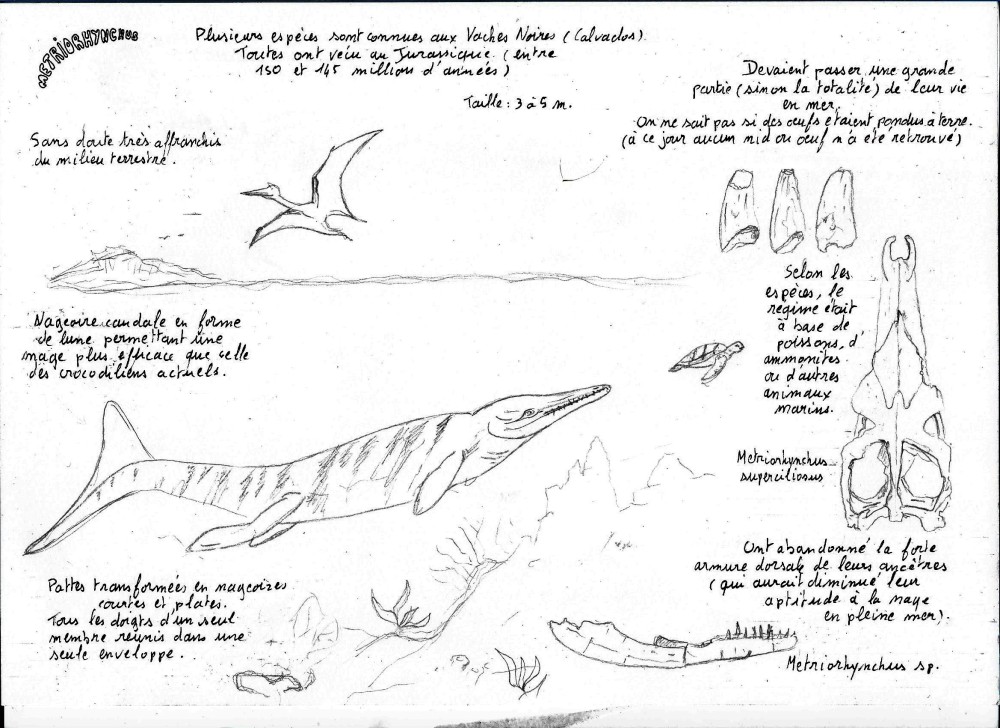 METRIORHYNCHUS
Plusieurs espéces sont connues aux Vaches Noires (Calvados).
Toutes ont vécu au Jurassique. (entre
150 et 145 million d'années)
Taille : 3 à 5 m.
Devaient passer une grande
partie (sinon la totalité) de leur vie
en mer.
On ne sait pas si des œufs étaient pondus à terre.
(à ce jour aucun nid ou œuf n'a été retrouvé)
Sans doute très affranchis
du milieu terrestre.
Selon les
espèces, le
régime était
à base de
poissons, d'
ammonites
ou d'autres
animaux
marins.
Nageoire caudale en forme
de lune permettant une
nage plus efficace que celle
des crocodiliens actuels.
Metriorhynchus
superciliosus
Ont abandonné la forte
armure dorsale de leurs ancêtres
(qui aurait diminué leur
aptitude à la nage
en pleine mer).
Pattes transformées en nageoires
courtes et plates.
Tous les doigts d'un seul
membre réunis dans une
seule enveloppe.
Metriorhynchus sp.